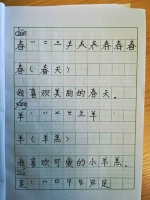 chūn
春 一 二 三 𡗗 夫 表 春 春 春
春（春天）
我喜欢美丽的春天。
yáng
羊 丶 丷 䒑 兰 羊
羊（羊羔）
我喜欢可爱的小羊羔。
zú
足 丨 口 口 甲 足 足